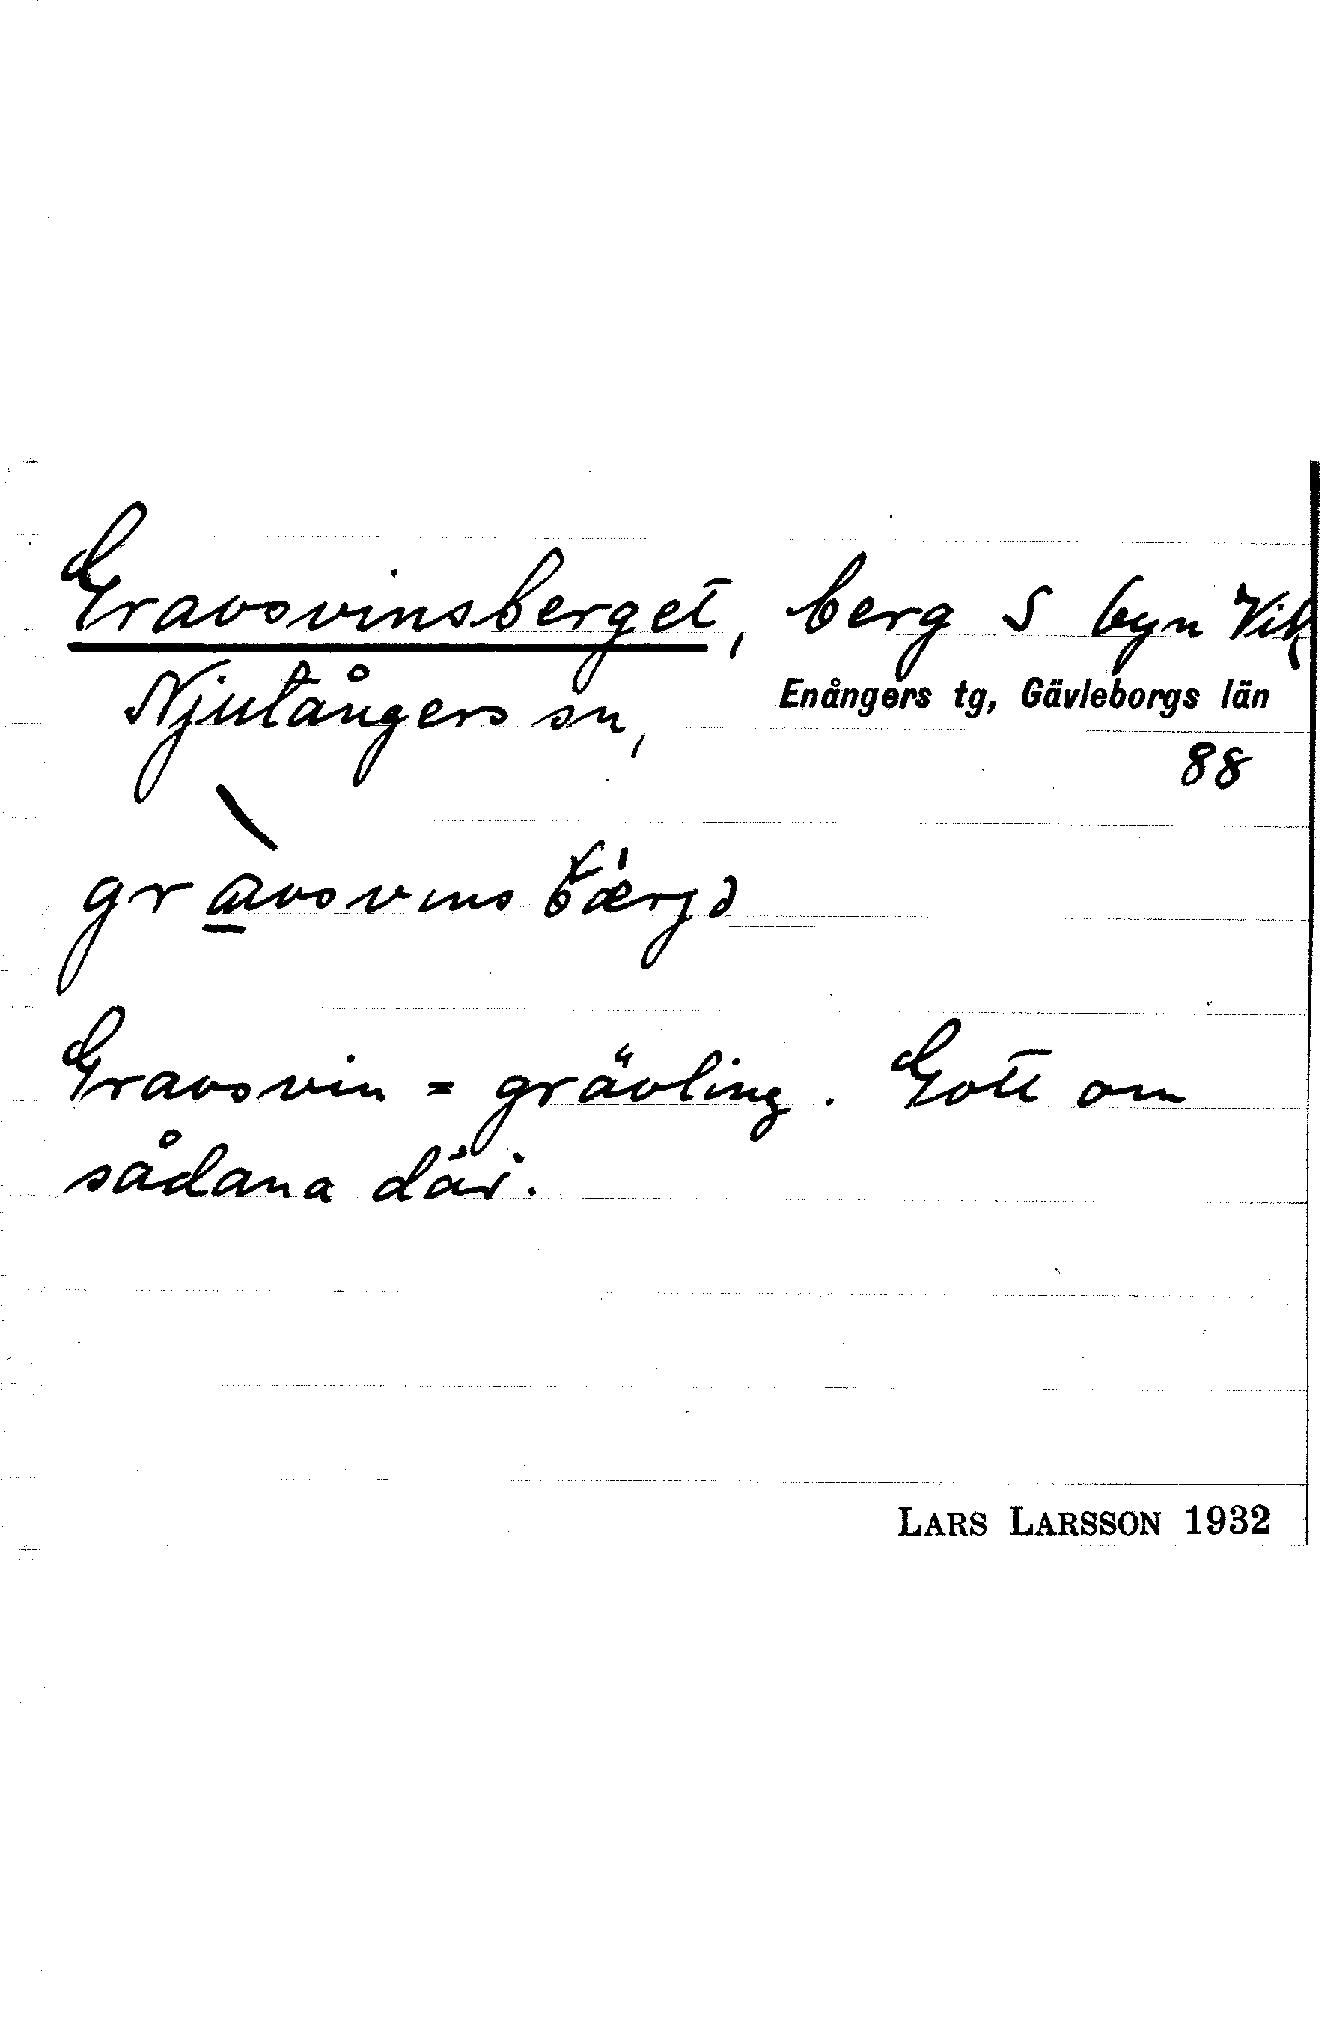 Gravsvinsberget, berg S byn Vik
Njutångers sn, Enångers tg, Gävleborgs län
88
gravsvinsbærjə
Gravsvin = grävling. Gott om
sådana där.
LARS LARSSON 1932